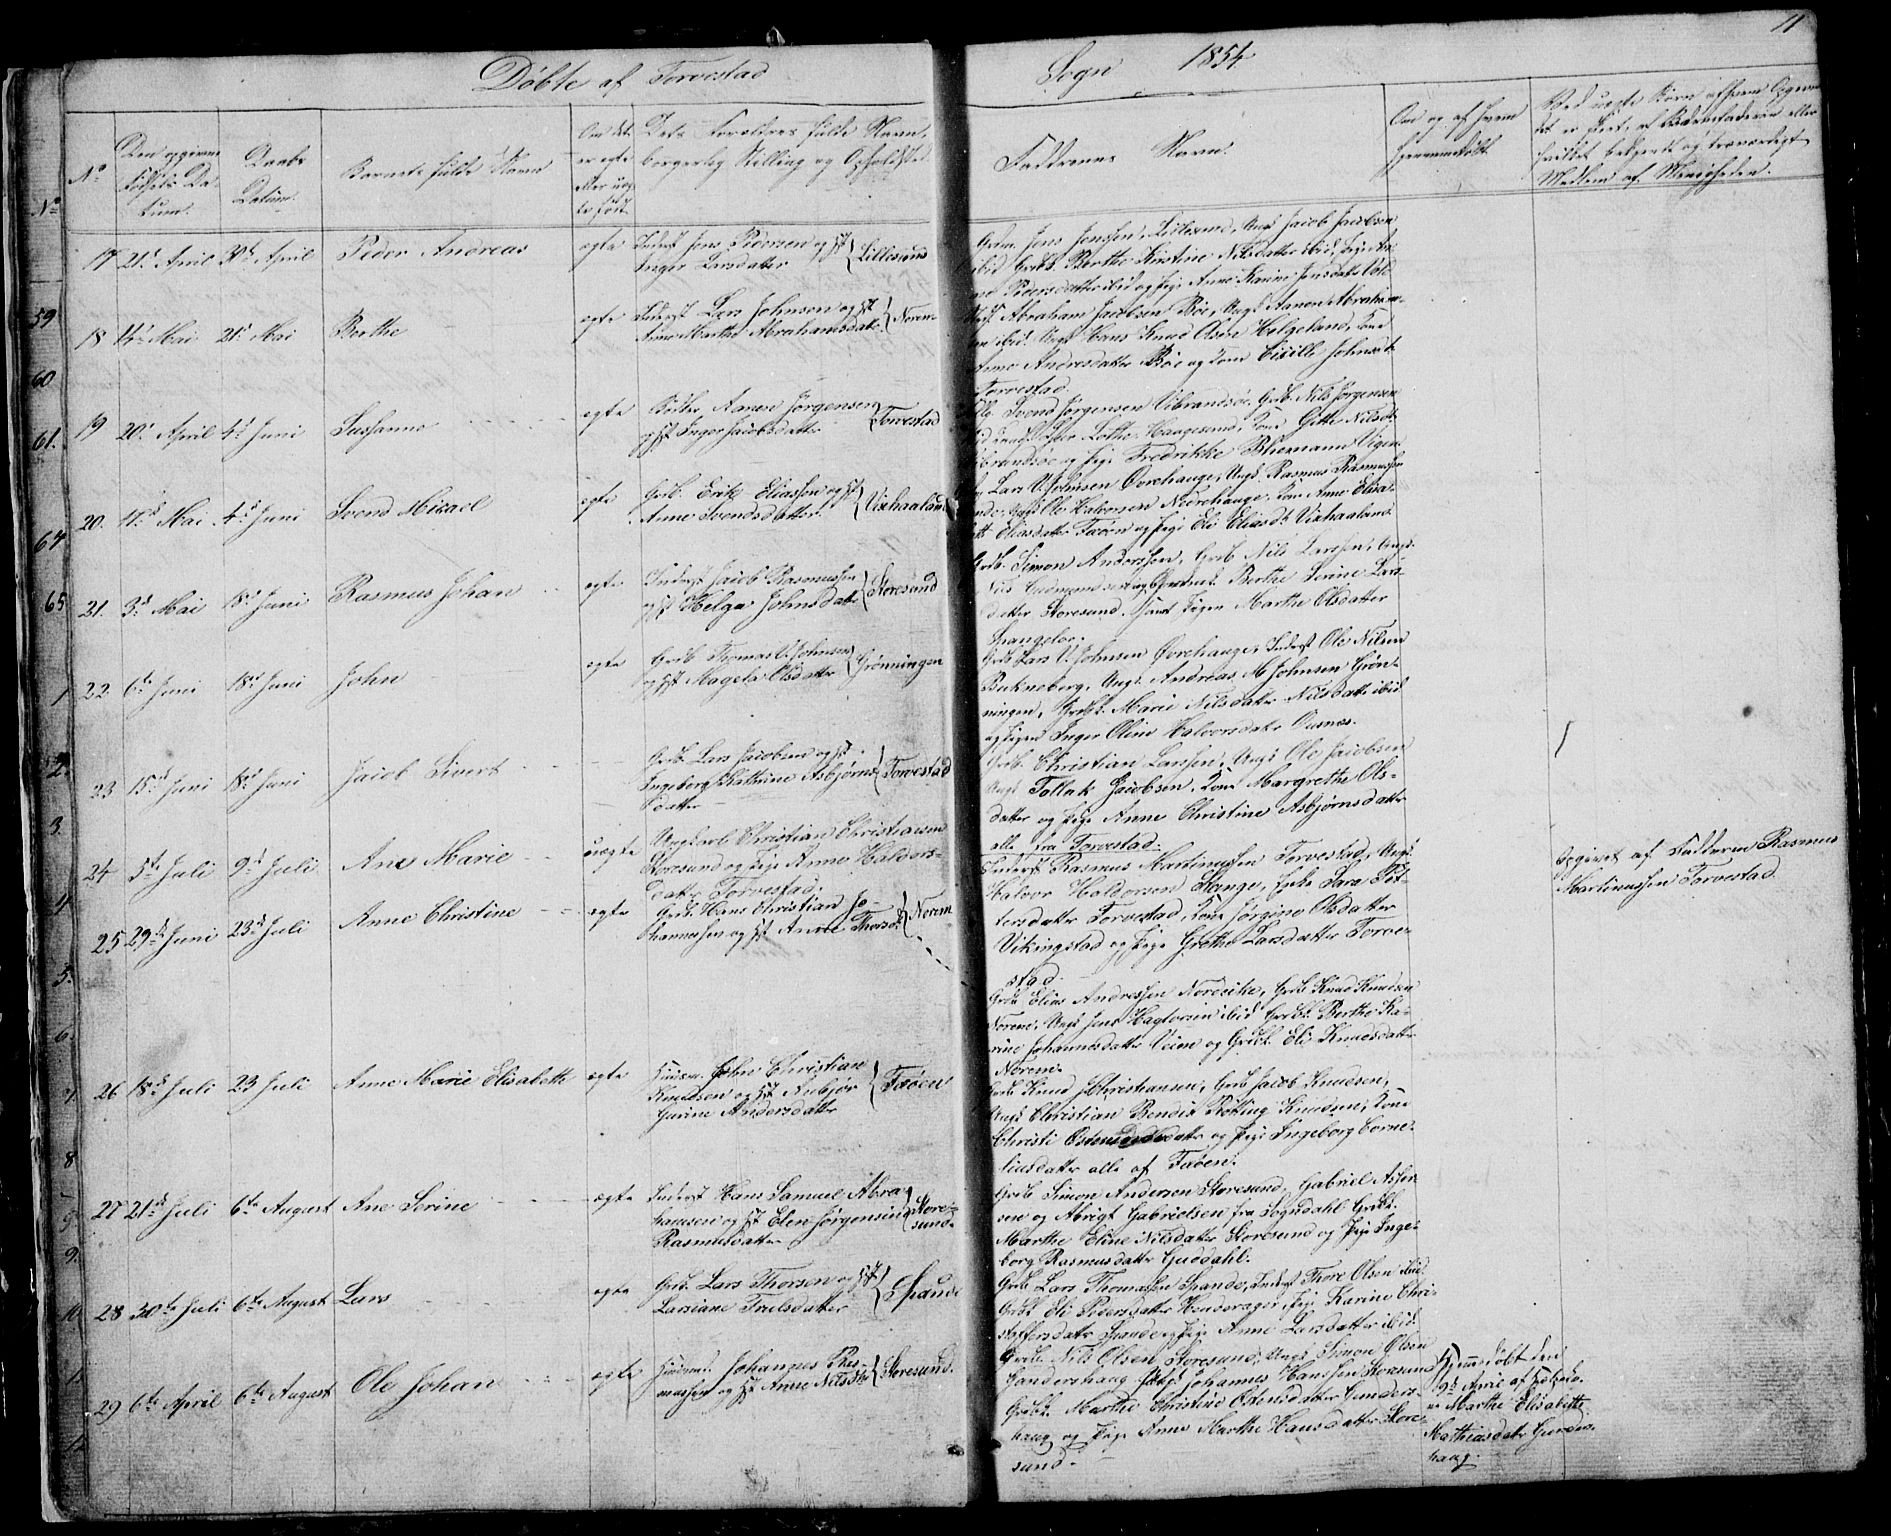 Døbte af Torvestad
Sogn 1854
11
No
Den opgivne
Fødsels Da-
tum.
Daabs
Datum.
Barnets fulde Navn
Om det
er egte
eller ueg-
te født.
Dets Forældres fulde Navn,
borgerlig Stilling og Opholdsted.
Faddernes Navn.
Om og af hvem
hjemmedøbt.
Ved uegte Børn af hvem Opgivn
det er skeet, af Barnefaderen eller
hvilket bekjendt og troværdigt
Medlem af Menigheden.
17 21d April 30te April Peder Andreas egte
Inderst Jens Pedersen og Hst
Inger Larsdatter
Lillesund
Grdm. Jens Jensen, Lillesund, Ungk Jacob Jacobsen
ibid Grdbk. Berthe Kirstine Nilsdatter ibid, Pige An-
ne Pedersdatter ibid og Pige Anne Karine Jensdatter
18 14d Mai 21d Mai Berthe egte
Inderst Lars Johnsen og Hst
Anne Marthe Abrahamsdatr
Norem
Abraham Jacobsen Bøe, Ungk Aanen Abraham-
sen ibid. Ungk Hans Knud Olsen Helgeland, Kone
Anne Andreasdatter Bøe og Kone Cicille Johnsdt
Torvestad
19 20d April 4d Juni Susanne egte
Aanen Jørgensen
og Hst Inger Jacobsdatter
Torvestad
Svend Jørgensen Vibrandsøe, Grdb. Nils Jørgensen
ibid Rothe Haugesund, Kone Gitte Nilsdt
Vibrandsøe og Pige Fredrikke
20. 17d Mai 4d Juni Svend Mikael egte
Grdb. Erik Eliassen og Hst
Anne Svendsdatter
Vixhaaland
Lars V. Johnsen Øvrehauge, Ungk. Rasmus Rasmussen
ibide, Ungk Ole Halvorsen Nedrehauge, Kone Anne Elisa-
beth Eliasdatter Fæøen og Pige Eli Eliasdt Vixhaaland
21. 3d Mai 18d Juni Rasmus Johan egte
Inderst Jacob Rasmussen
og Hst Helga Johnsdatter
Storesund
Grdb. Simon Anderssen, Grdb Nils Larssen, Ungk.
Nils Gudmundsen og Grdbk. Berthe Serine Lars-
datter Storesund, samt Pigen Marthe Olsdatter
Spangeloe.
22. 6te Juni 18d Juni John egte
Grdb. Thomas V. Johnsen
og Hst Magela Olsdatter
Grønningen
Grdb Lars V. Johnsen Øvrehauge, Inderst Ole Nilsen
Bukneberg, Ungk. Andreas M Johnsen Grøn-
ningen, Grdbk. Marie Nilsdatter Nilsdatter ibid
og Pigen Inger Oline Halvorsdatr Ousnes.
23 15d Juni 18d Juni Jacob Sivert
Grdb. Lars Jacobsen og Hst
Ingeborg Kathrine Asbjørns-
datter
Torvestad
Grdb. Christian Larssen, Ungk Ole Jacobsen
Ungk Tollak Jacobsen, Kone Margrethe Ols-
datter og Pige Anne Christine Asbjørnsdatter
alle fra Torvestad.
24 5te Juli 9d Juli Ane Marie uegte
Ungkarl Christian Christiansen
Storesund og Pige Anne Haldors-
datr Torvestad.
Inderst Rasmus Martinussen Torvestad, Ungk
Halvor Haldorsen Stange, Enke Sara Pet-
tersdatter Torvestad, Kone Jørgine Olsdatter
Vikingstad og Pige Grethe Larsdatter Torve-
stad.
Opgivet af Fadderen Rasmus
Martinussen Torvestad
25 29de Juni 23d Juli Anne Christine egte
Grdb. Hans Christian Jo-
hannessen og Hst Anne Thorsdt
Norem
Grdb Elias Andreassen Nordvike, Grdb Knud Knudsen
Norem, Ungk Jens Hagtorsen ibid Grdbk Berthe Ka-
rine Johannesdatter Veim og Grdbk Eli Knudsdatter
Norem.
26 18d Juli 23 Juli Anne Marie Elisabeth egte
Huusm. John Christian
Knudsen og Hst Anbjør
Gurine Andersdatter
Fæøen
Grdb Knud JChristiansen, Grdb Jacob Knudsen,
Ungk Christian Bendix Rotting Knudsen, Kone
Christi Østensdatter og Pige Ingeborg Corne-
liusdatter alle af Fæøen.
27 21d Juli 6te August Ane Serine egte
Inderst Hans Samuel Abra-
hamsen og Hst Elen Jørgensine
Rasmusdatter
Store-
sund.
Grdb Simon Andersen Storesund, Gabriel Asbjør
nse og Abrigt Gabrielsen fra Sogndahl Grdbk.
Marthe Eline Nilsdatter Storesund og Pige Inge-
borg Rasmusdatter Guddahl.
28 30te Juli 6te August Lars egte
Grdb. Lars Thorsen og Hst
Larsiane Truelsdatter
Spande
Grdb Lars Thomassen Spande, Inderst Thore Olsen ibid.
Grdbk Eli Pedersdatter Hondevager Pige Karine Chri-
stoffersdatr Spande og Pige Anne Larsdatter ibid.
29 6te April 6te August Ole Johan egte
Huusmd. Johannes Ras-
mussen og Hst Anne Nilsdtr
Storesund.
Grdb. Nils Olsen Storesund, Ungk Simon Olsen
Gundershaug Johannes Hanssen Storesund
Grdbk. Marthe Christine Østensdatter Gunders-
haug og Pige Anne Marthe Hansdatter Store-
sund.
Hjemmedøbt den
9d April af Gjordmo-
r Marthe Elisabeth
Mathiasdatr Gunders-
haug.
No
59
60
61.
64
65
1
2.
3.
4
5.
6.
7.
8
9
9.
10
11
12